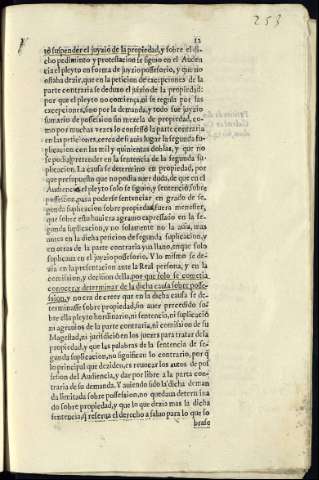 253
12
to suspender el juyzio de la propiedad, y sobre el di-
cho pedimiento y protestacion se siguio en el Audien
cia el pleyto en forma de juyzio possessorio, y que no
estaua dezir, que en la peticion de excepciones de la
parte contraria se deduxo el juizio de la propiedad:
por que el pleyto no comiença, ni se regula por las
excepciones, sino por la demanda, y todo fue juyzio
sumario de possession sin mezcla de propiedad, co-
mo por muchas vezes lo confessò la parte contraria
en las peticiones, cerca de si auia lugar la segunda su-
plicacion con las mil y quinientas doblas, y que no
se podia pretender en la sentencia de la segunda su-
plicacion. La causa se determino en propiedad, por
que presupuesto que no podia auer duda, de que en el
Audiencia el pleyto solo se siguio, y sentencio, sobre
possession, para poderse sentenciar en grado de se-
gunda suplicacion sobre propiedad, fuera menester,
que sobre esta huuiera agrauio expressado en la se-
gunda suplicacion, y no solamente no la auia, mas
antes en la dicha peticion de segunda suplicacion, y
en otras de la parte contraria yua llano, en que solo
suplicaua en el juyzio possessorio. Y lo mismo se de-
zia en la presentacion ante la Real persona, y en la
comission, y decision della, por que solo se cometia
conocer, y determinar de la dicha causa sobre posse-
ssion, y no era de creer que en la dicha causa se de-
terminasse sobre propiedad, sin auer precedido so-
bre ella pleyto ordinario, ni sentencia, ni suplicaciō
ni agrauios de la parte contraria, ni comission de su
Magestad, ni jurisdicion en los juezes para tratar de la
propiedad, y que las palabras de la sentencia de se-
gunda suplicacion, no significan lo contrario, por q̃
lo principal que deziden, es reuocar los autos de pos-
session del Audiencia, y dar por libre a la parte con-
traria de su demanda. Y auiendo sido la dicha deman
da limitada sobre possession, no quedaua determina
do sobre propiedad, y que lo que dezia mas la dicha
sentencia, q̃ reserua el derecho a saluo para lo que so